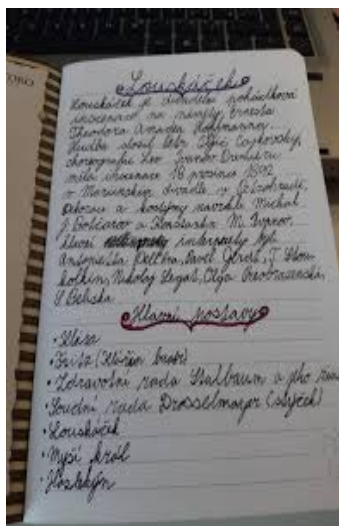 Louskáček
Louskáček je divadelní pohádková
inscenace na náměty Ernesta
Theodora Amadea Hoffmanna.
Hudba složil Petr Iljič Čajkovský,
choreografii Lev Ivanov. Premiéru
měla inscenace 18 prosince 1892
v Mariinském divadle v Petrohradě.
Dekorace a kostýmy navrhli Michal
J. Bočarov a Konstantin M. Ivanov.
Hlavní interprety byli
Antonietta Dell'Era, Pavel Gerdt, T. Stou-
kolkin, Nikolaj Legat, Olga Preobraženská,
Hlavní postavy
• Klára
• Fritz (Klářin bratr)
• Zdravotní rada Stalbaum a jeho
• Soudní rada Drosselmayer (strýček)
• Louskáček
• Myší král
• Harlekýn